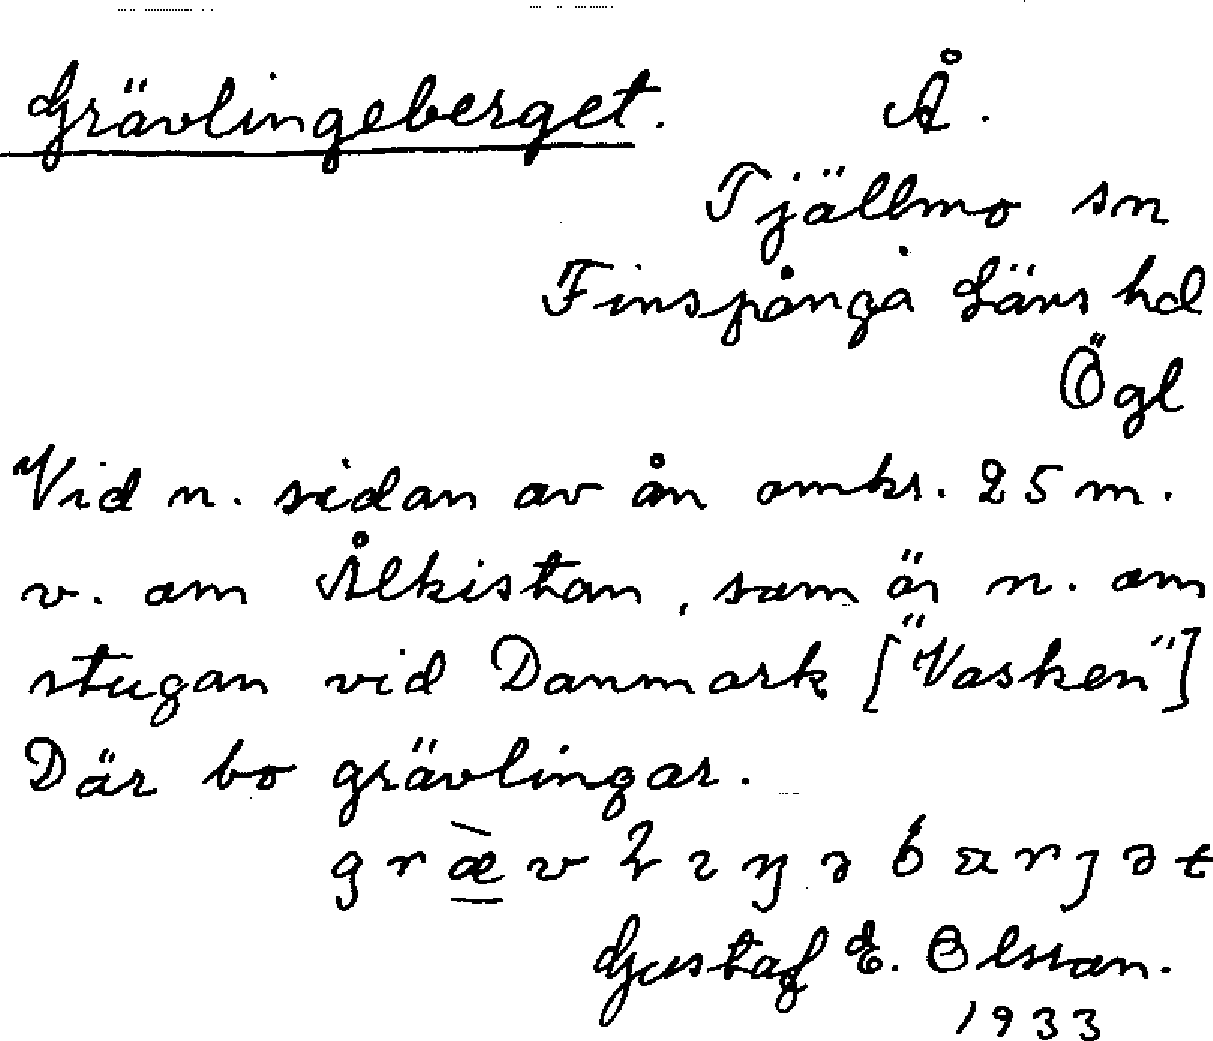 Grävlingeberget. Å.
Tjällmo sn
Finspånga Läns hd
Ögl
Vid n. sidan av ån omkr. 25 m.
v. om Ålkistan, som är n. om
stugan vid Danmark ["Vasken"]
Där bo grävlingar.
Gustaf E. Olsson.
1933